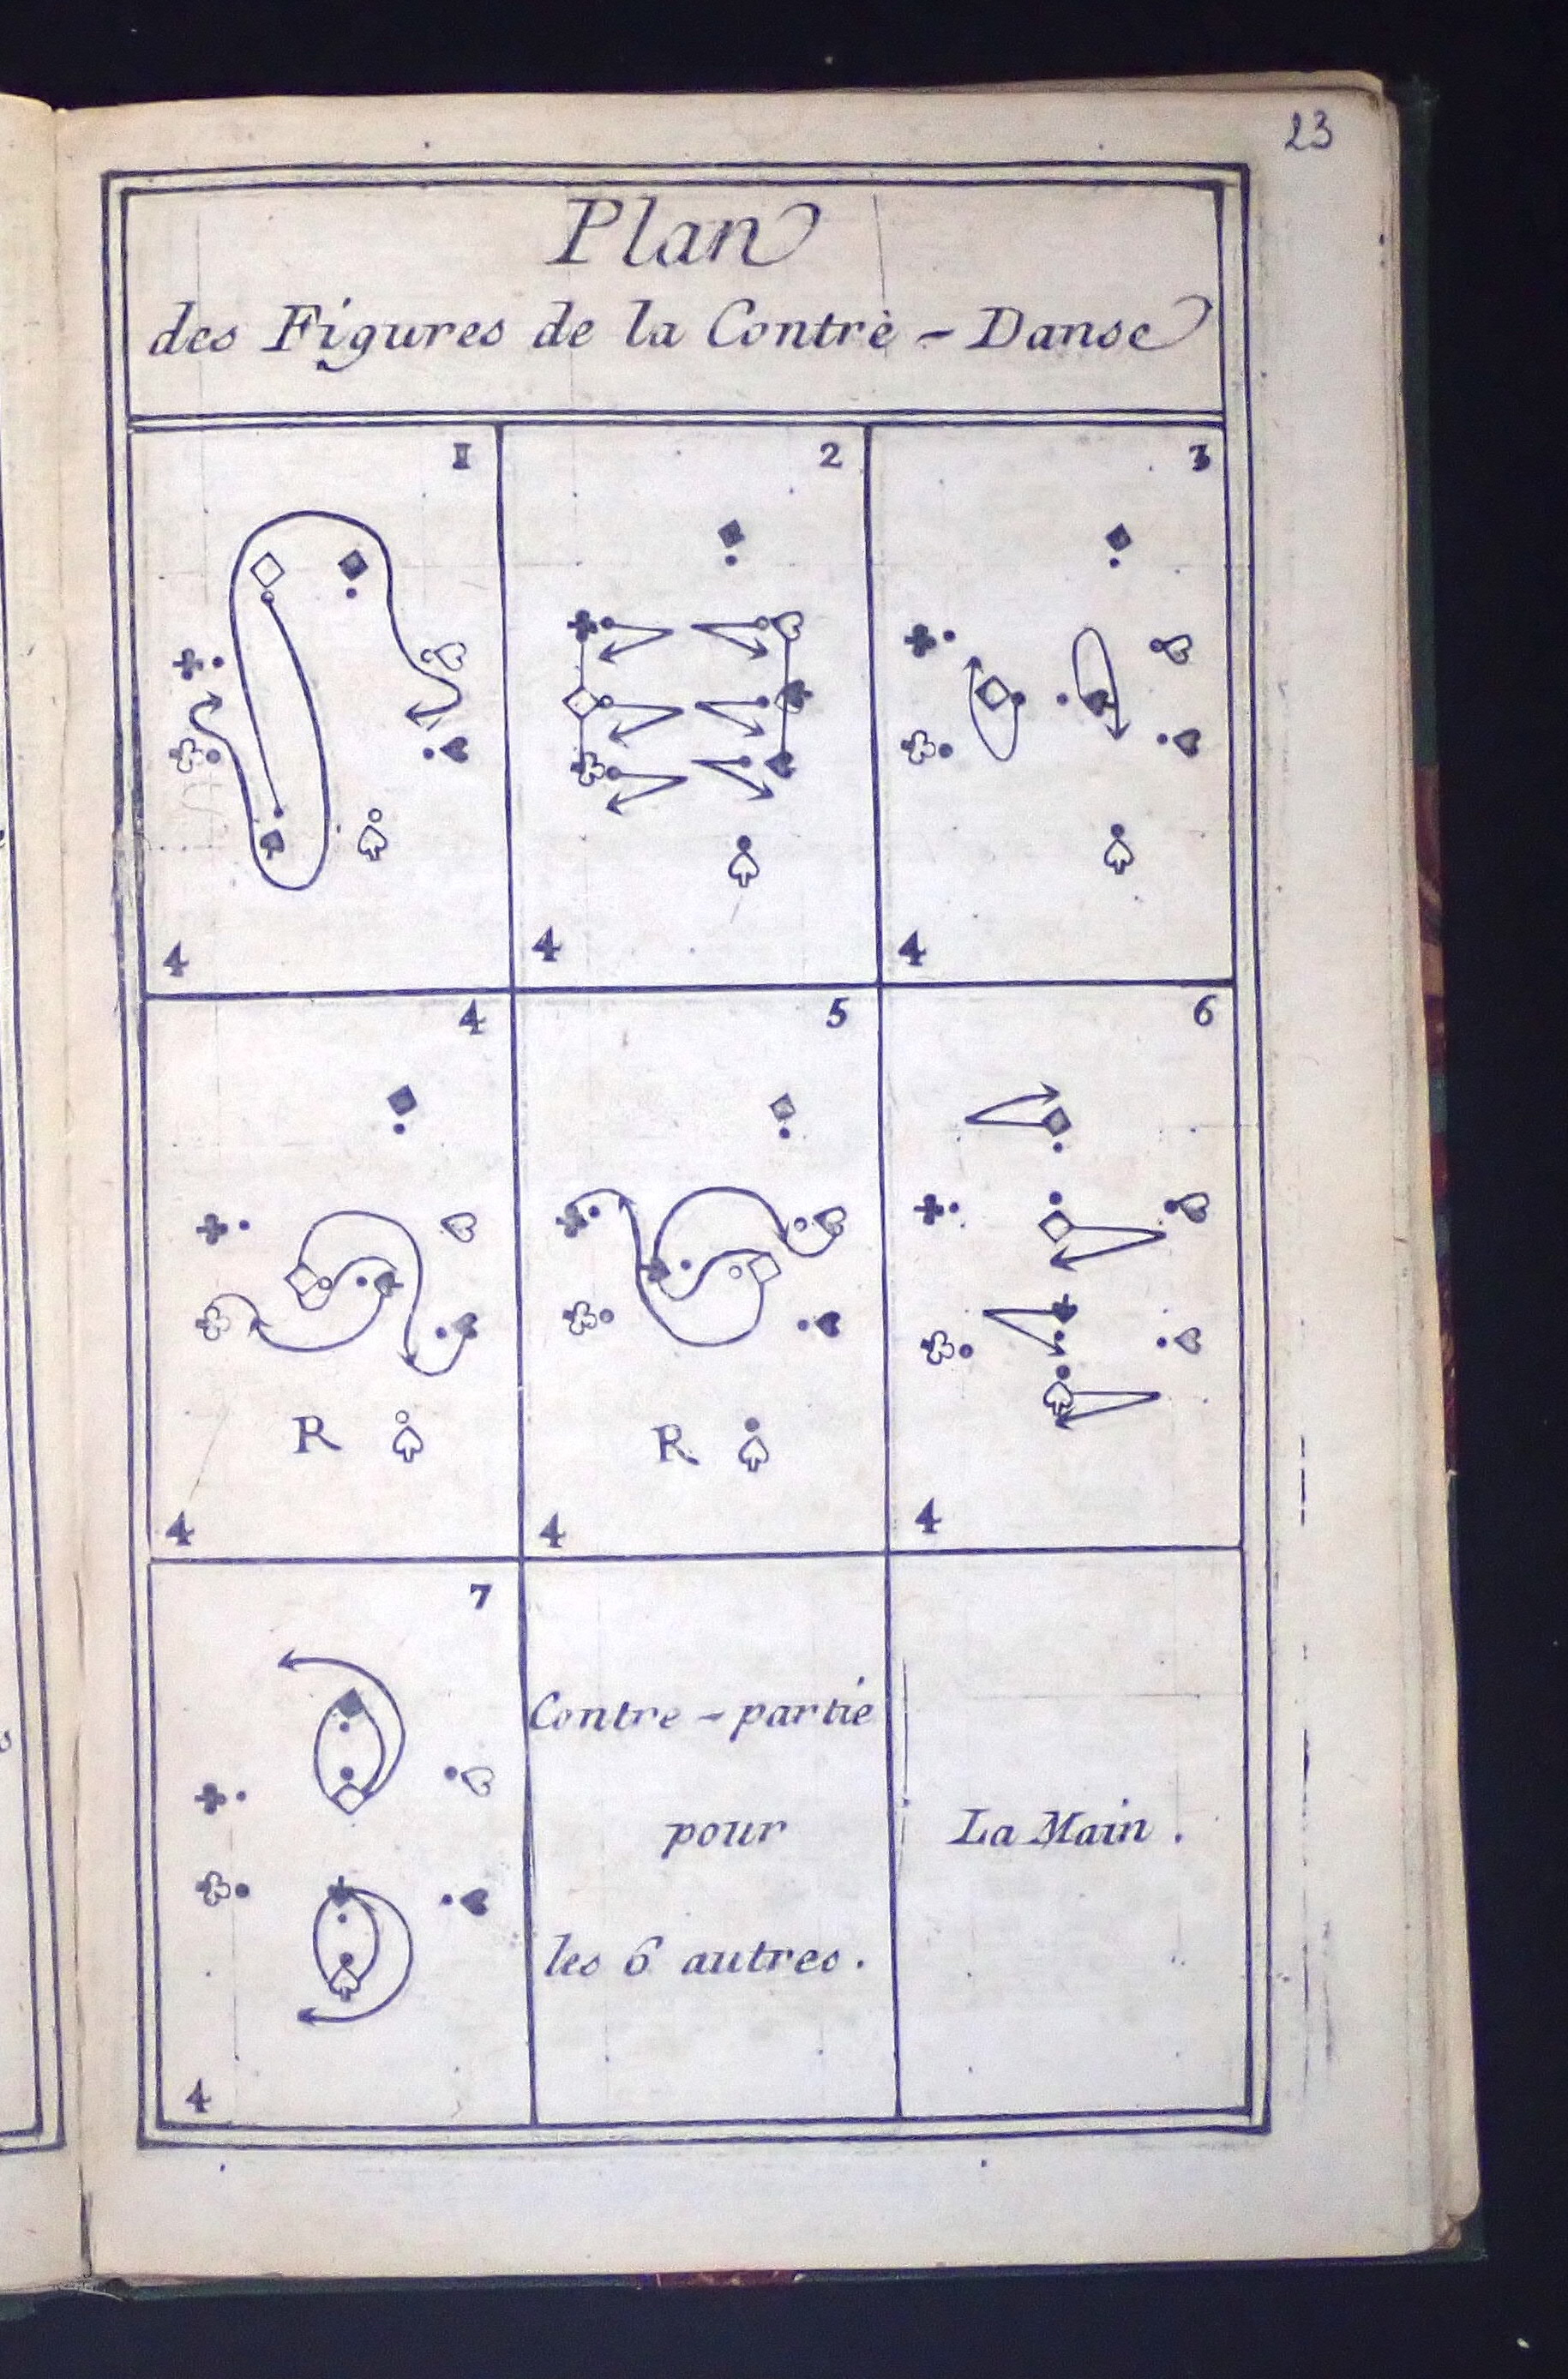 23
Plan
des Figures de la Contrè - Danse
1
4
2
4
3
4
4
R
4
5
R.
4
6
4
7
4
Contre - partie
pour
les 6 autres.
La Main .